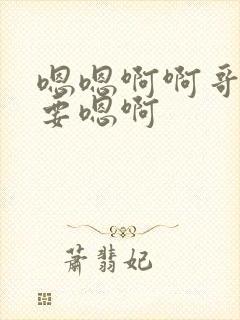 嗯嗯啊啊哥
要嗯啊
萧翡妃